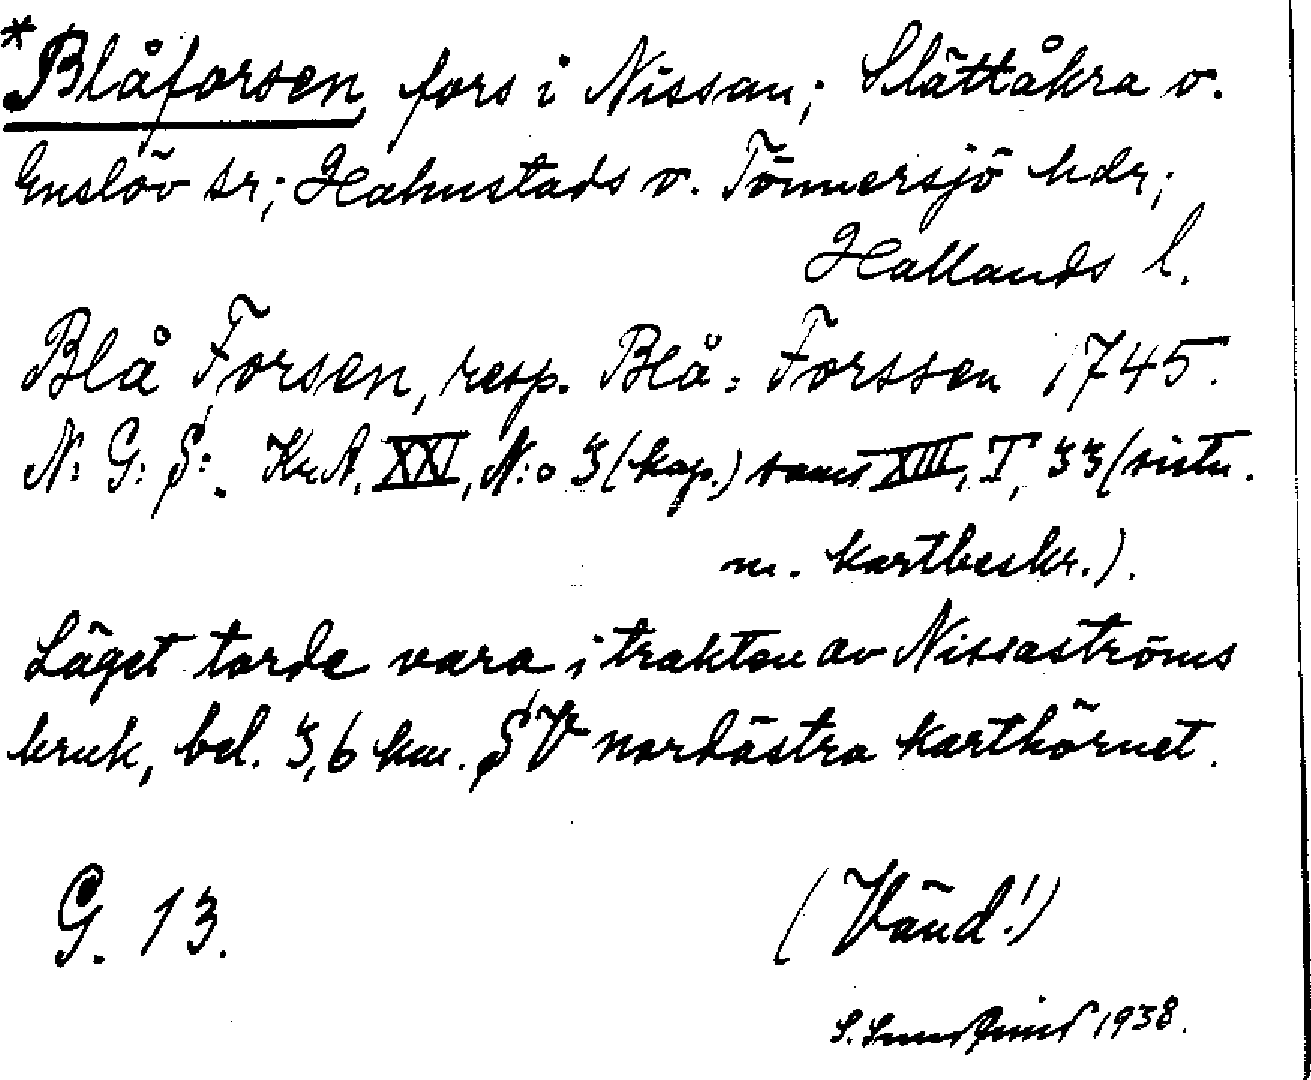 *Blåforsen, fors i Nissan; Slättåkra o.
Enslöv sr; Halmstads o. Tönnersjö hdr;
Hallands l.
Blå Forsen, resp. Blå: Forssen 1745.
N: G: S:. Kr.A. XXI, N:o 3 (kop.) samt XIII, T, 33 (sistn.
m. kartbeskr.).
Läget torde vara i trakten av Nissaströms
bruk, bel. 3,6 km. SV nordöstra karthörnet.
G. 13.
(Vänd!)
S. 1938.